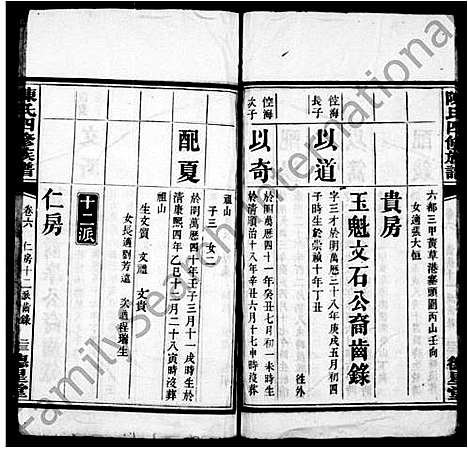 陳氏四修族譜
六都三甲黃草港嘉頭圍丙山壬向
女適張大恒
貴房
玉魁文石公裔齒錄
以道
長子
字三才於明萬歷三十八年庚戌五月初四
子時生於崇禎十年丁丑
往外
以奇
次子
於明萬歷四十一年癸丑七月初一未時生
於清順治十八年辛丑六月十七申時沒葬
祖山
子三 女二
配夏
於明萬歷四十年壬子三月十一戌時生於
清康熙四年乙巳十二月二十八寅時沒葬
祖山
生文質 文禮 文貴
女長適劉芳遠 次適程瑞生
十二派
仁房
陳氏四修族譜
卷六 仁房十二派齒錄
德星堂
FamilySearch International